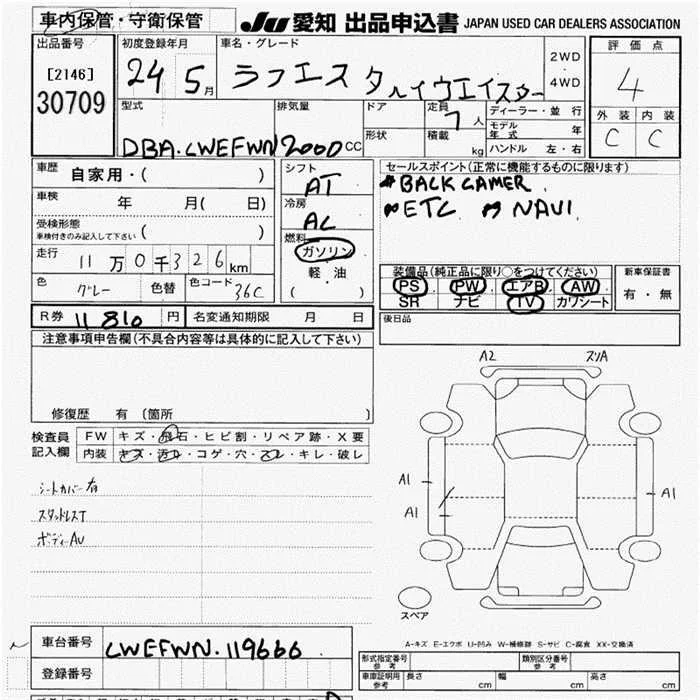 車内保管・守衛保管
JU 愛知 出品申込書 JAPAN USED CAR DEALERS ASSOCIATION
出品番号
[2146]
30709
初度登録年月
24 5月
車名・グレード
ラフエスタハイウエイスター
2WD
・
4WD
評価点
4
外装 内装
C C
型式
DBA-CWEFWN
排気量
2000cc
ドア
形状
定員
7人
積載
kg
ディーラー・並行
モデル年式 年
ハンドル 左・右
車歴
自家用・( )
車検
年 月( 日)
受検形態
車検付きのみ記入して下さい ( )
走行
11万0千326km
色
グレー
色替
色コード
36C
シフト
AT
冷房
AC
燃料
ガソリン
軽・油
( )
セールスポイント(正常に機能するものに限ります)
BACK CAMER
ETC NAVI
装備品(純正品に限り○をつけてください)
PS・PW・エアB・AW
SR ナビ TV カワシート
新車保証書
有・無
後日品
R券 11810円
名変通知期限 月 日
注意事項申告欄(不具合内容等は具体的に記入して下さい)
修復歴 有 〔箇所 〕
検査員
記入欄
FW キズ・飛石・ヒビ割・リペア跡・X要
内装 キズ・汚れ・コゲ・穴・スレ・キレ・破レ
シートカバー有
スタッドレスT
ボディーAU
A2 スリA
A1
A1
A1
スペア
A-キズ E-エクボ U-凹み W-補修跡 S-サビ C-腐食 XX-交換済
車台番号
CWEFWN-119666
登録番号
形式指定番号
参考
類別区分番号
参考
車庫証明用
参考
長さ cm 幅 cm 高さ cm